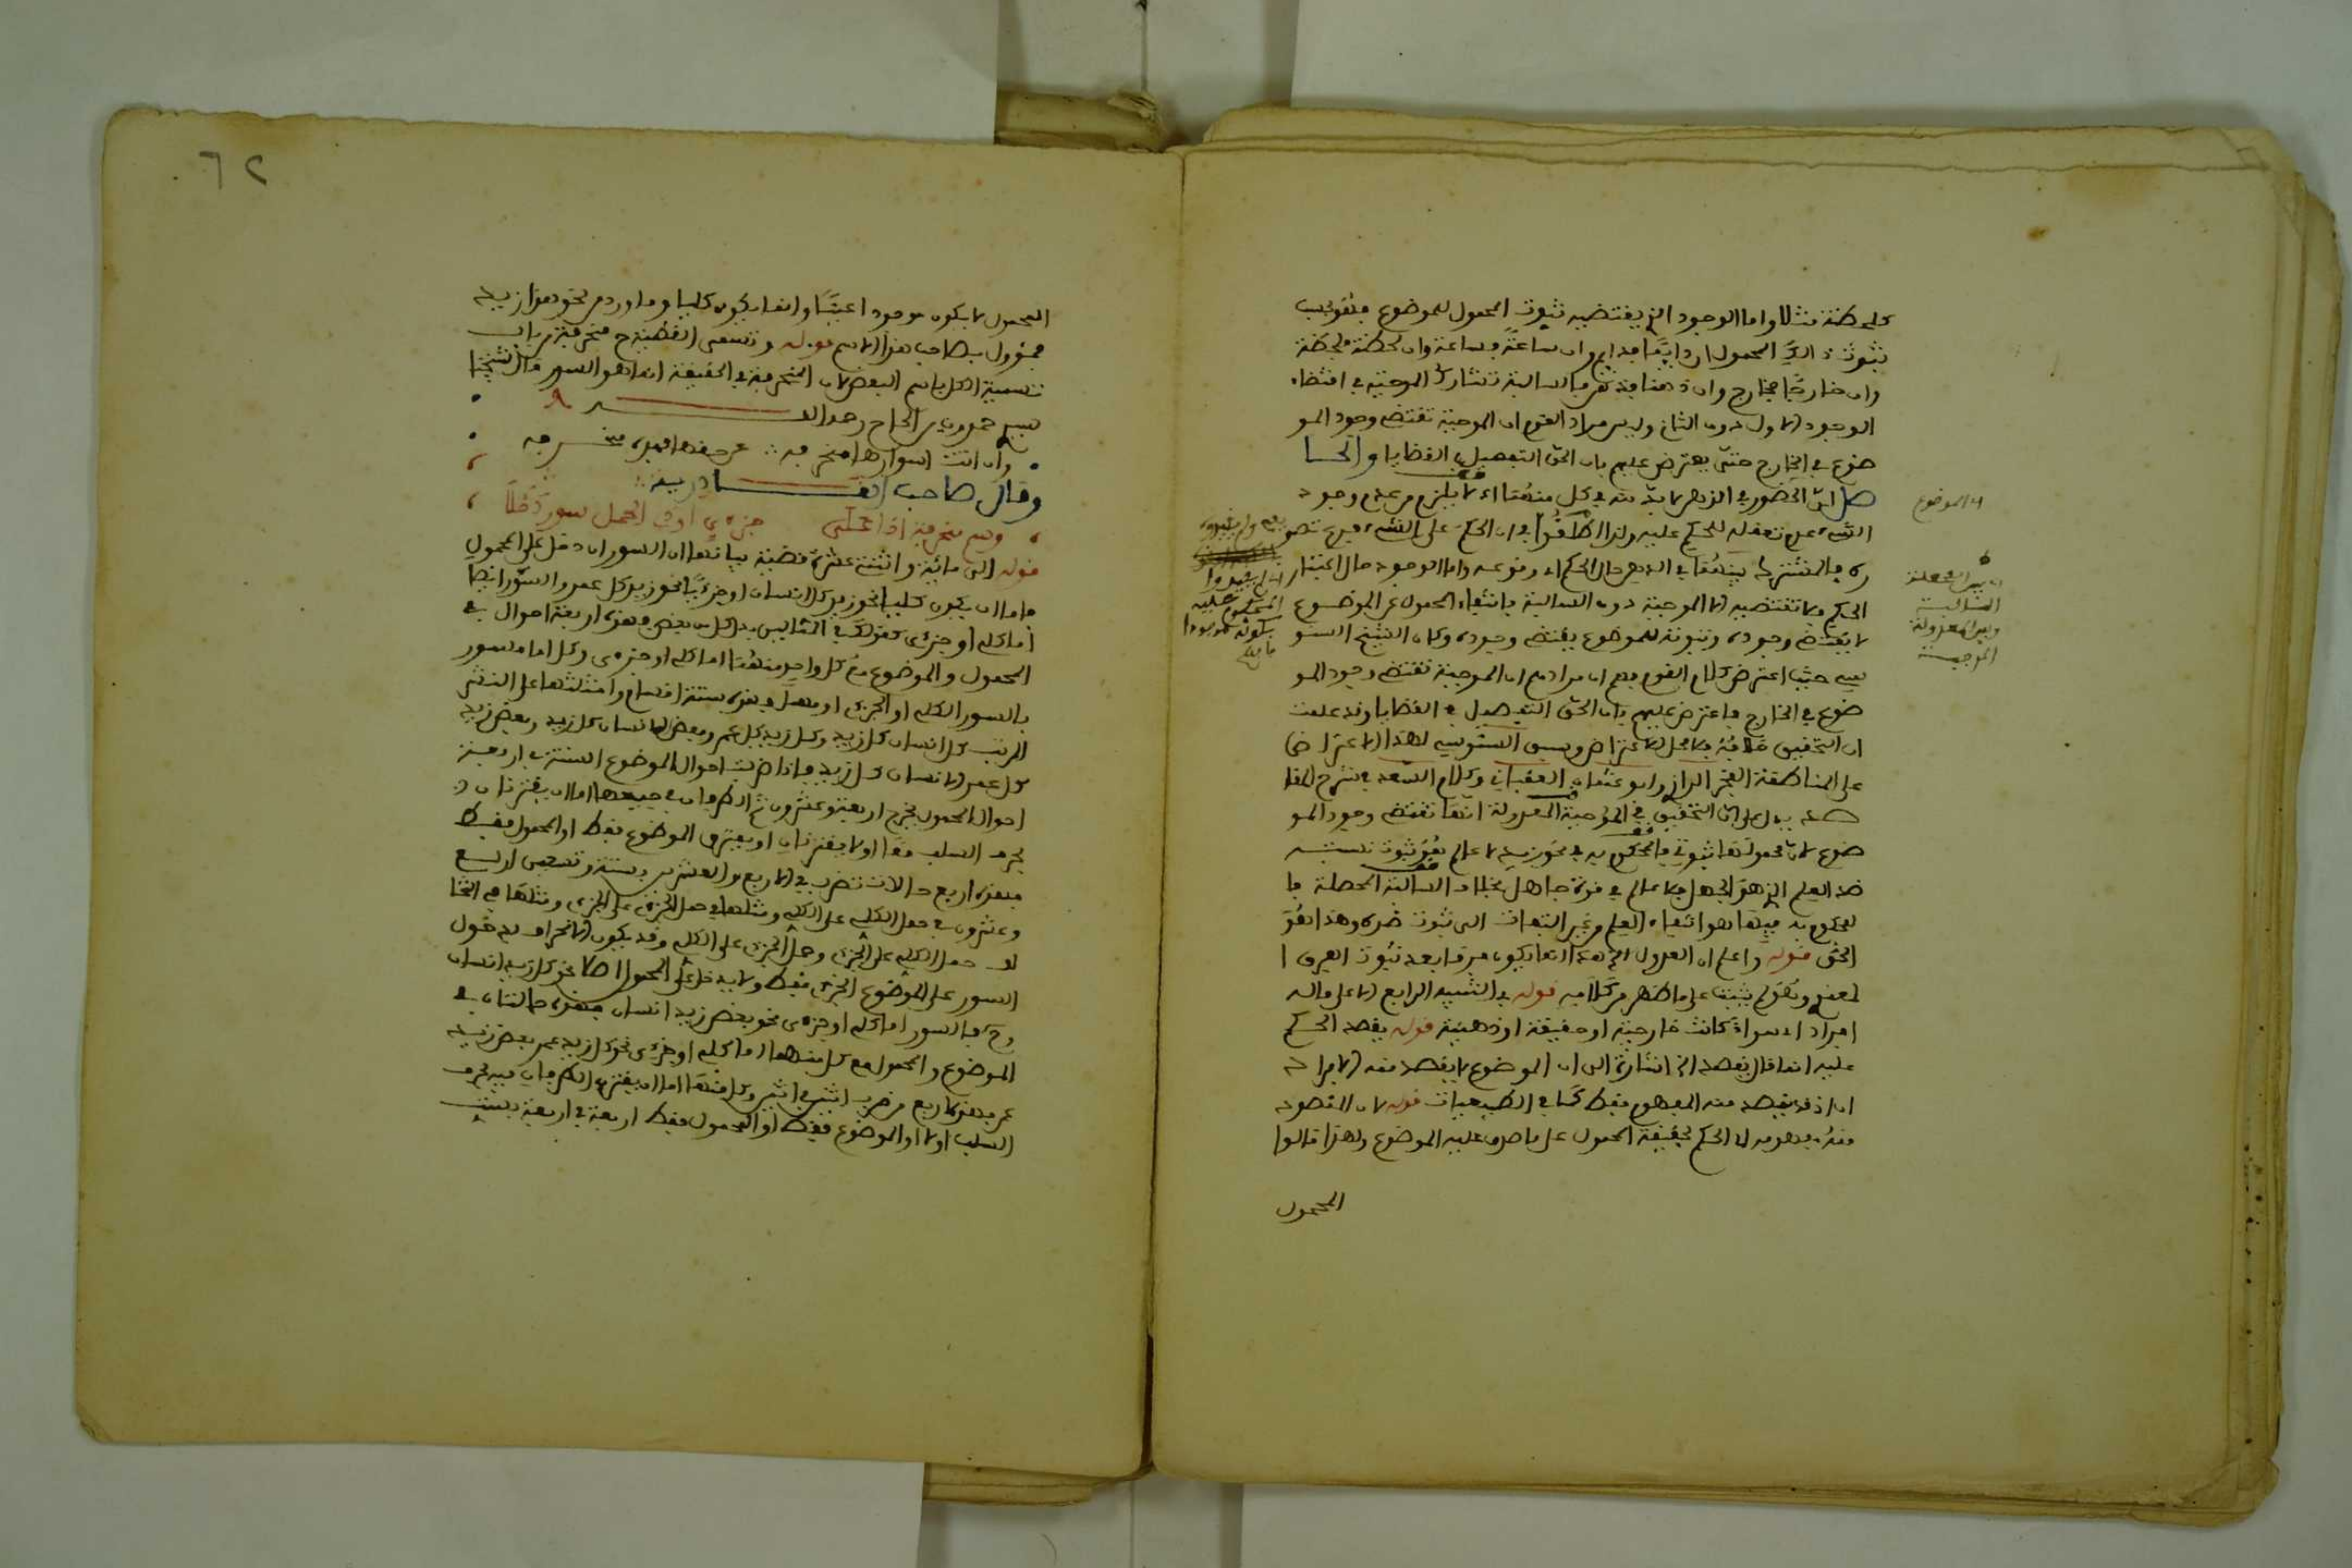 كلحظة مثلا واما الوجود الذي يقتضيه ثبوت المحمول للموضوع فهو بحسب
ثبوت ذلك المحمول ان دايما فدايم وان ساعة فساعة وان لحظة فلحظة
وان خارجا فخارج وان ذهنا فذهن فالسالبة تشارك الموجبة في اقتضاء
الوجود الاول دون الثاني وليس مراد القوم ان الموجبة تقتضي وجود المو
ضوع في الخارج حتى يعترض عليهم بان الحق التفصيل في القضايا والحا
صل ان الحضور في الذهن لا بد منه في كل منهما اذ لا يلزم من عدم وجود
الشيء عدم تعقله للحكم عليه ولذا اطلقوا ان الحكم على الشيء فرع تصو
ره فالمشترك بينهما في الذهن حال الحكم اي وقوعه واما الوجود حال اعتبار
الحكم فلا تقتضيه الا الموجبة دون السالبة فانتفاء المحمول عن الموضوع
لا يقتضي وجوده وثبوته للموضوع يقتضي وجوده وكان الشيخ السنو
سي حيث اعترض كلام القوم فهم ان مرادهم ان الموجبة تقتضي وجود المو
ضوع في الخارج فاعترض عليهم بان الحق التفصيل في القضايا وقد علمت
ان التحقيق خلافه فلا محل للاعتراض وسبق السنوسي لهذا الاعتراض
على المناطقة الفخر الرازي وابو عثمان العقباني وكلام السعد في شرح المقا
صد يدل على ان التحقيق في الموجبة المعدولة انها تقتضي وجود المو
ضوع لان محمولها ثبوتي فالمحكوم به في نحو زيد لا عالم هو ثبوت نسبة
ضد العلم الذي هو الجهل فلا عالم في قوة جاهل بخلاف السالبة المحصلة فا
لمحكوم به فيها هو انتفاء العلم من غير التفات الى ثبوت ضده وهذا هو
الحق قوله واعلم ان العدول الخ هذا انما يكون فرقا بعد ثبوت الفرق ا
لمعنوي ولم يثبت على ما ظهر من كلامه قوله في التنبيه الرابع الا على ماله
افراد اي سواء كانت خارجية او حقيقة او ذهنية قوله يقصد الحكم
عليه انما قال يقصد الخ اشارة الى ان الموضوع لا يقصد منه الافراد
ابدا اذ قد يقصد منه المفهوم فقط كما في الطبيعيات قوله لان المقصود
منه مفهومه اي الحكم بحقيقة المحمول على ما صدق عليه الموضوع ولهذا قالوا
المحمول
اي الموضوع
اي بين المحصلة
السالبة
وبين المعدولة
الموجبة
المحكوم عليه
بكونه موجودا
٦٢
المحمول لا يكون موجودا عينيا وانما يكون كليا وما ورد من نحو هذا زيد
فمؤول بصاحب هذا الاسم قوله وتسمى القضية ح منحرفة من باب
تسمية الكل باسم البعض لان المنحرف في الحقيقة انما هو السور قال شيخنا
سيدي حمدون بن الحاج رحمه الله
وان اتت اسوارها منحرفه
وقال صاحب القادرية
وسم منحرفة اذا على جزءي او في الحمل سور دخلا
قوله الى مائة واثنتي عشرة قضية بيانها ان السور ان دخل على المحمول
فاما ان يكون كليا نحو زيد كل انسان او جزءيا نحو زيد كل عمرو والسور ايضا
اما كلي او جزءي كقولك في المثالين بدل كل بعض فهذه اربعة احوال في
المحمول والموضوع مع كل واحد منهما اما كلي او جزءي وكل اما مسور
بالسور الكلي او الجزءي او مهمل فهذه ستة اقسام وامثلتها على النشر
المرتب كل انسان كل زيد وكل زيد كل عمرو وبعض الانسان كل زيد وبعض زيد
كل عمرو الانسان كل زيد فاذا ضربت احوال الموضوع الستة في اربعة
احوال المحمول يخرج اربعة وعشرون ثم الطرفان في جميعها اما ان يقترنا
بحرف السلب معا او لا يقترنان او يقترن الموضوع فقط او المحمول فقط
فهذه اربع حالات تضرب في الاربع والعشرين بستة وتسعين اربع
وعشرون في حمل الكلي على الكلي ومثلها في حمل الجزءي على الجزءي ومثلها في الثا
لث حمل الكلي على الجزءي وحمل الجزءي على الكلي وقد يكون الانحراف بدخول
السور على الموضوع الجزءي فقط ولا يدخل على المحمول اصلا نحو كل زيد انسان
وح فالسور اما كلي او جزءي نحو بعض زيد انسان فهذه حالتان في
الموضوع والمحمول مع كل منهما اما كلي او جزءي نحو كل زيد عمرو بعض زيد
عمرو فهذه اربع من ضرب اثنين في اثنين وكل منها اما ان يقترن الطرفان فيه بحرف
السلب او لا او الموضوع فقط او المحمول فقط اربعة في اربعة بستة